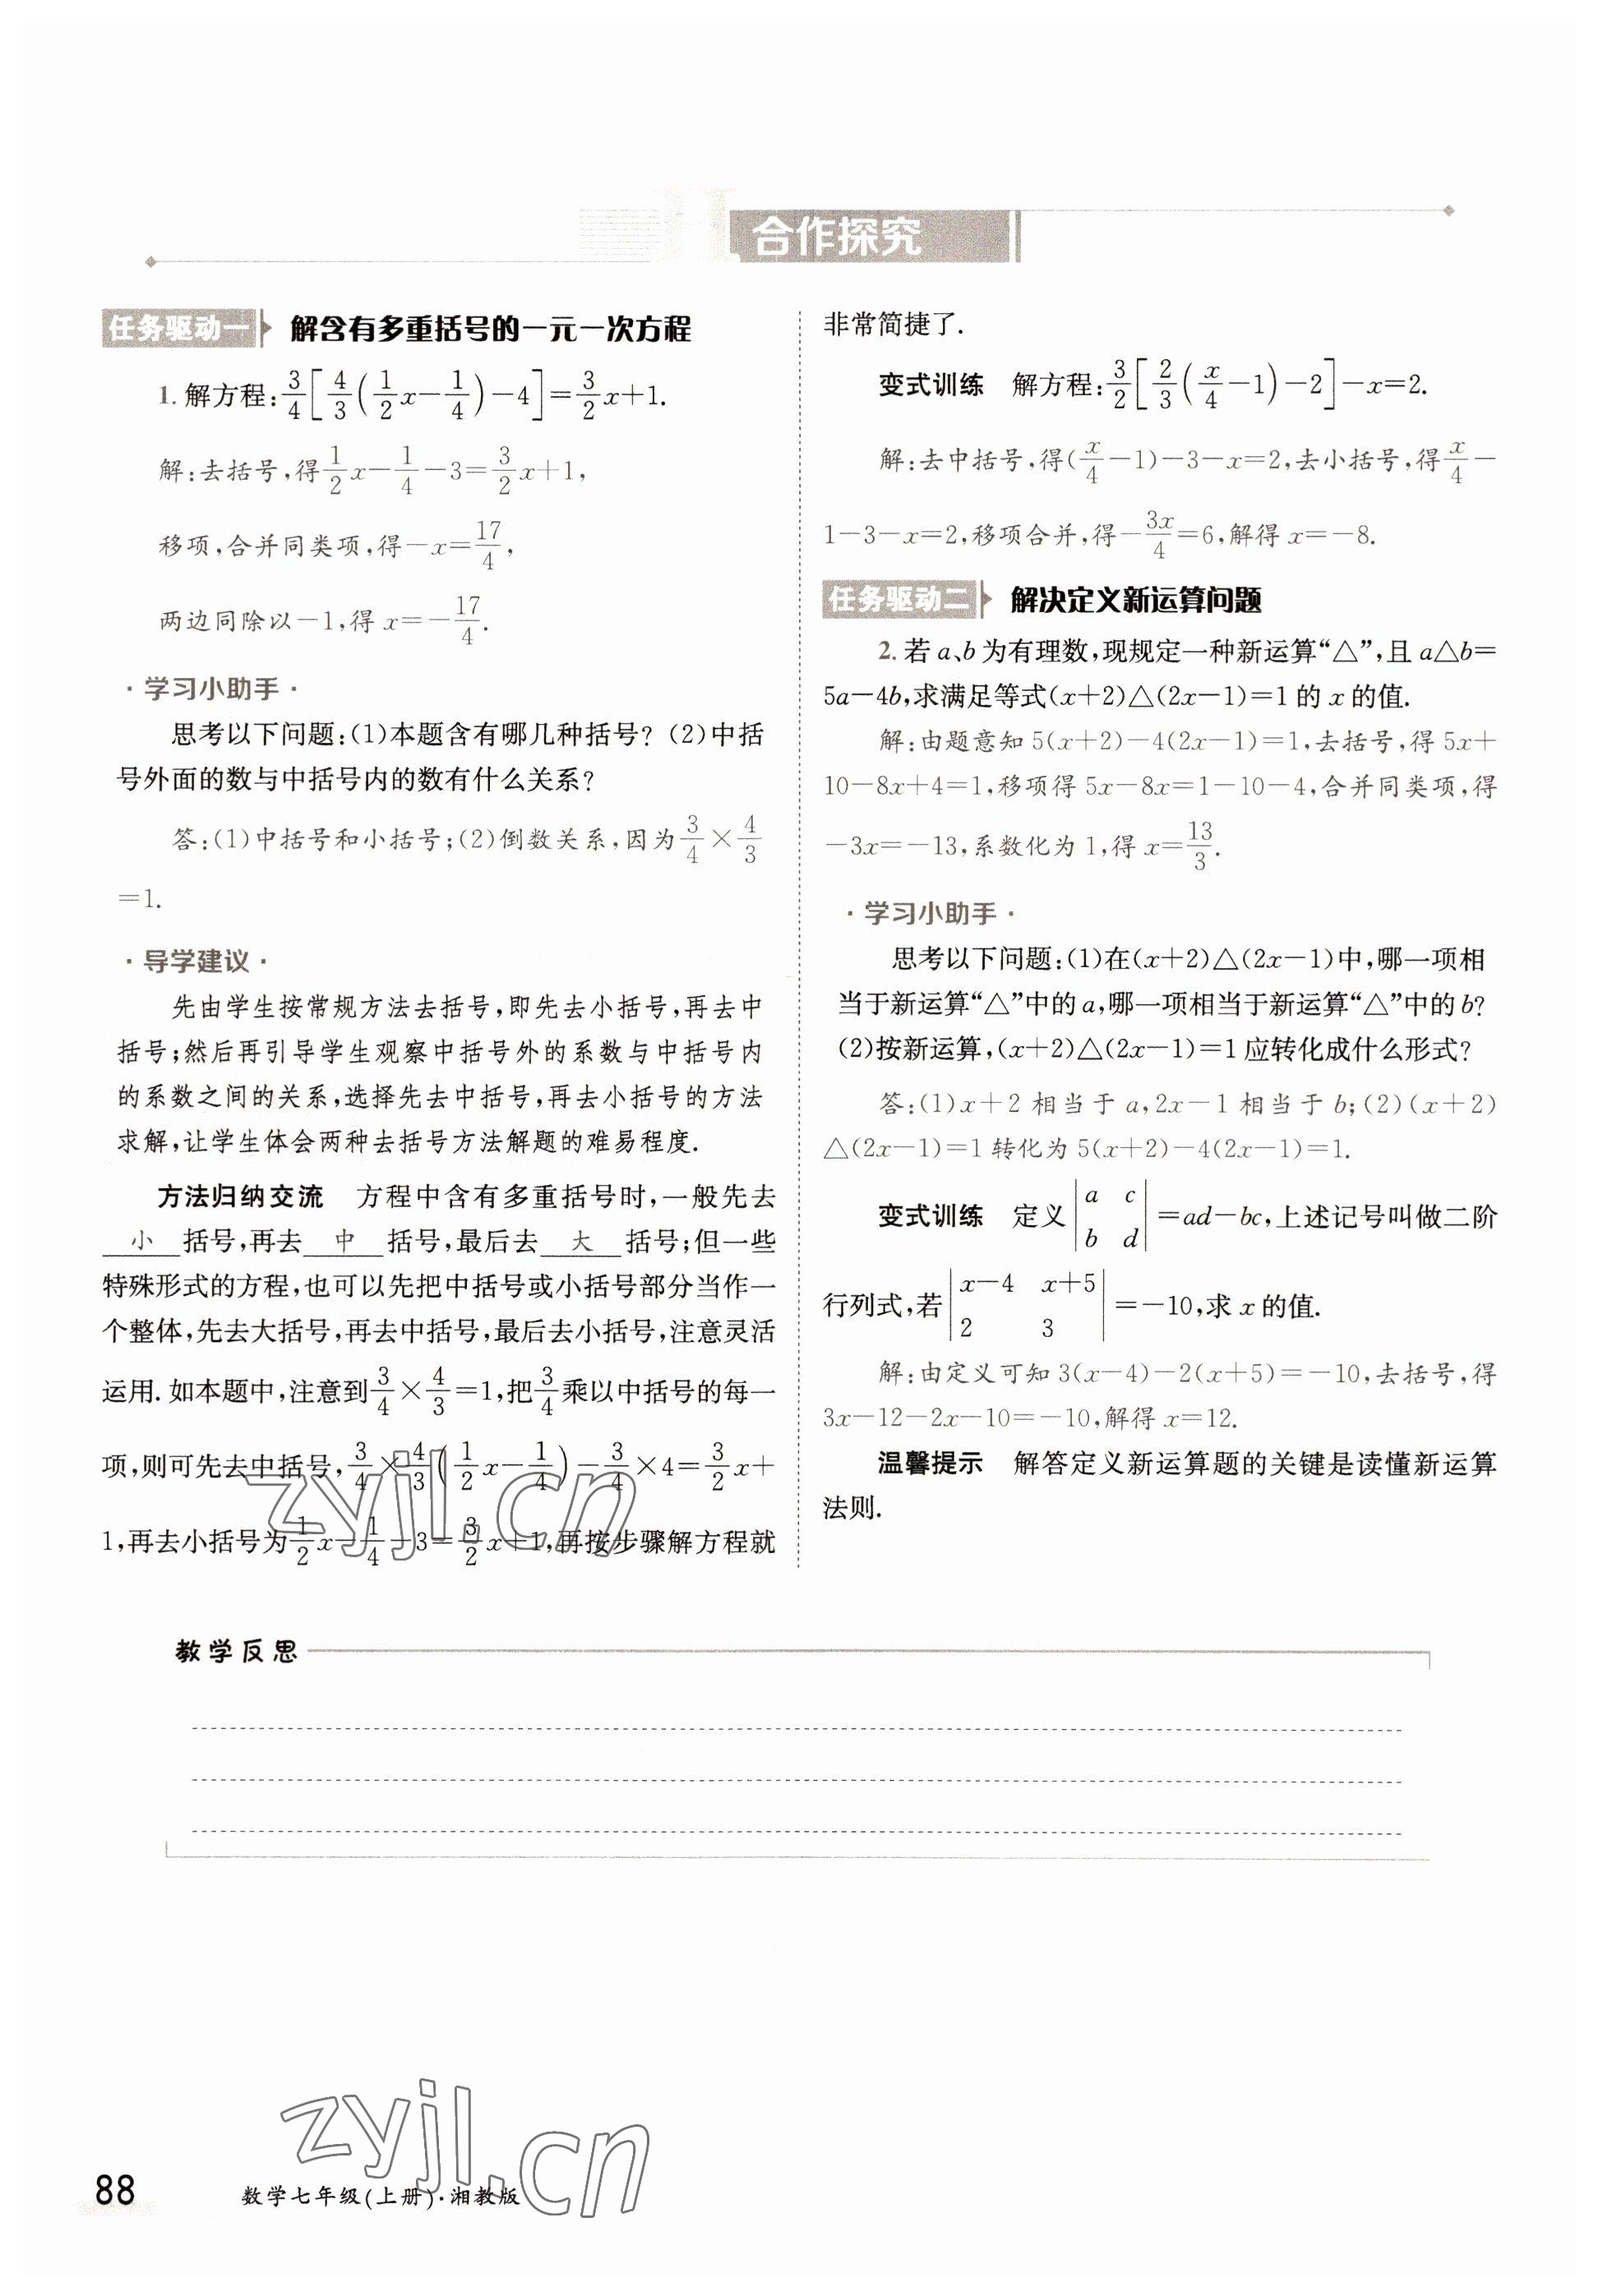 合作探究
任务驱动一 解含有多重括号的一元一次方程
1. 解方程:3/4[4/3(1/2x-1/4)-4]=3/2x+1.
解:去括号,得1/2x-1/4-3=3/2x+1,
移项,合并同类项,得-x=17/4,
两边同除以-1,得 x=-17/4.
·学习小助手·
思考以下问题:(1)本题含有哪几种括号? (2)中括
号外面的数与中括号内的数有什么关系?
答:(1)中括号和小括号;(2)倒数关系,因为3/4×4/3
=1.
·导学建议·
先由学生按常规方法去括号,即先去小括号,再去中
括号;然后再引导学生观察中括号外的系数与中括号内
的系数之间的关系,选择先去中括号,再去小括号的方法
求解,让学生体会两种去括号方法解题的难易程度.
方法归纳交流 方程中含有多重括号时,一般先去
小 括号,再去 中 括号,最后去 大 括号;但一些
特殊形式的方程,也可以先把中括号或小括号部分当作一
个整体,先去大括号,再去中括号,最后去小括号,注意灵活
运用. 如本题中,注意到3/4×4/3=1,把3/4乘以中括号的每一
项,则可先去中括号,3/4×4/3(1/2x-1/4)-3/4×4=3/2x+
1,再去小括号为1/2x-1/4-3=3/2x+1,再按步骤解方程就
非常简捷了.
变式训练 解方程:3/2[2/3(x/4-1)-2]-x=2.
解:去中括号,得(x/4-1)-3-x=2,去小括号,得x/4-
1-3-x=2,移项合并,得-3x/4=6,解得 x=-8.
任务驱动二 解决定义新运算问题
2. 若 a、b 为有理数,现规定一种新运算“△”,且 a△b=
5a-4b,求满足等式(x+2)△(2x-1)=1 的 x 的值.
解:由题意知 5(x+2)-4(2x-1)=1,去括号,得 5x+
10-8x+4=1,移项得 5x-8x=1-10-4,合并同类项,得
-3x=-13,系数化为 1,得 x=13/3.
·学习小助手·
思考以下问题:(1)在(x+2)△(2x-1)中,哪一项相
当于新运算“△”中的 a,哪一项相当于新运算“△”中的 b?
(2)按新运算,(x+2)△(2x-1)=1 应转化成什么形式?
答:(1) x+2 相当于 a,2x-1 相当于 b;(2)(x+2)
△(2x-1)=1 转化为 5(x+2)-4(2x-1)=1.
变式训练 定义 |a c; b d| =ad-bc,上述记号叫做二阶
行列式,若 |x-4 x+5; 2 3| =-10,求 x 的值.
解:由定义可知 3(x-4)-2(x+5)=-10,去括号,得
3x-12-2x-10=-10,解得 x=12.
温馨提示 解答定义新运算题的关键是读懂新运算
法则.
zyjl.cn
教学反思
zyjl.cn
88 数学七年级(上册)·湘教版